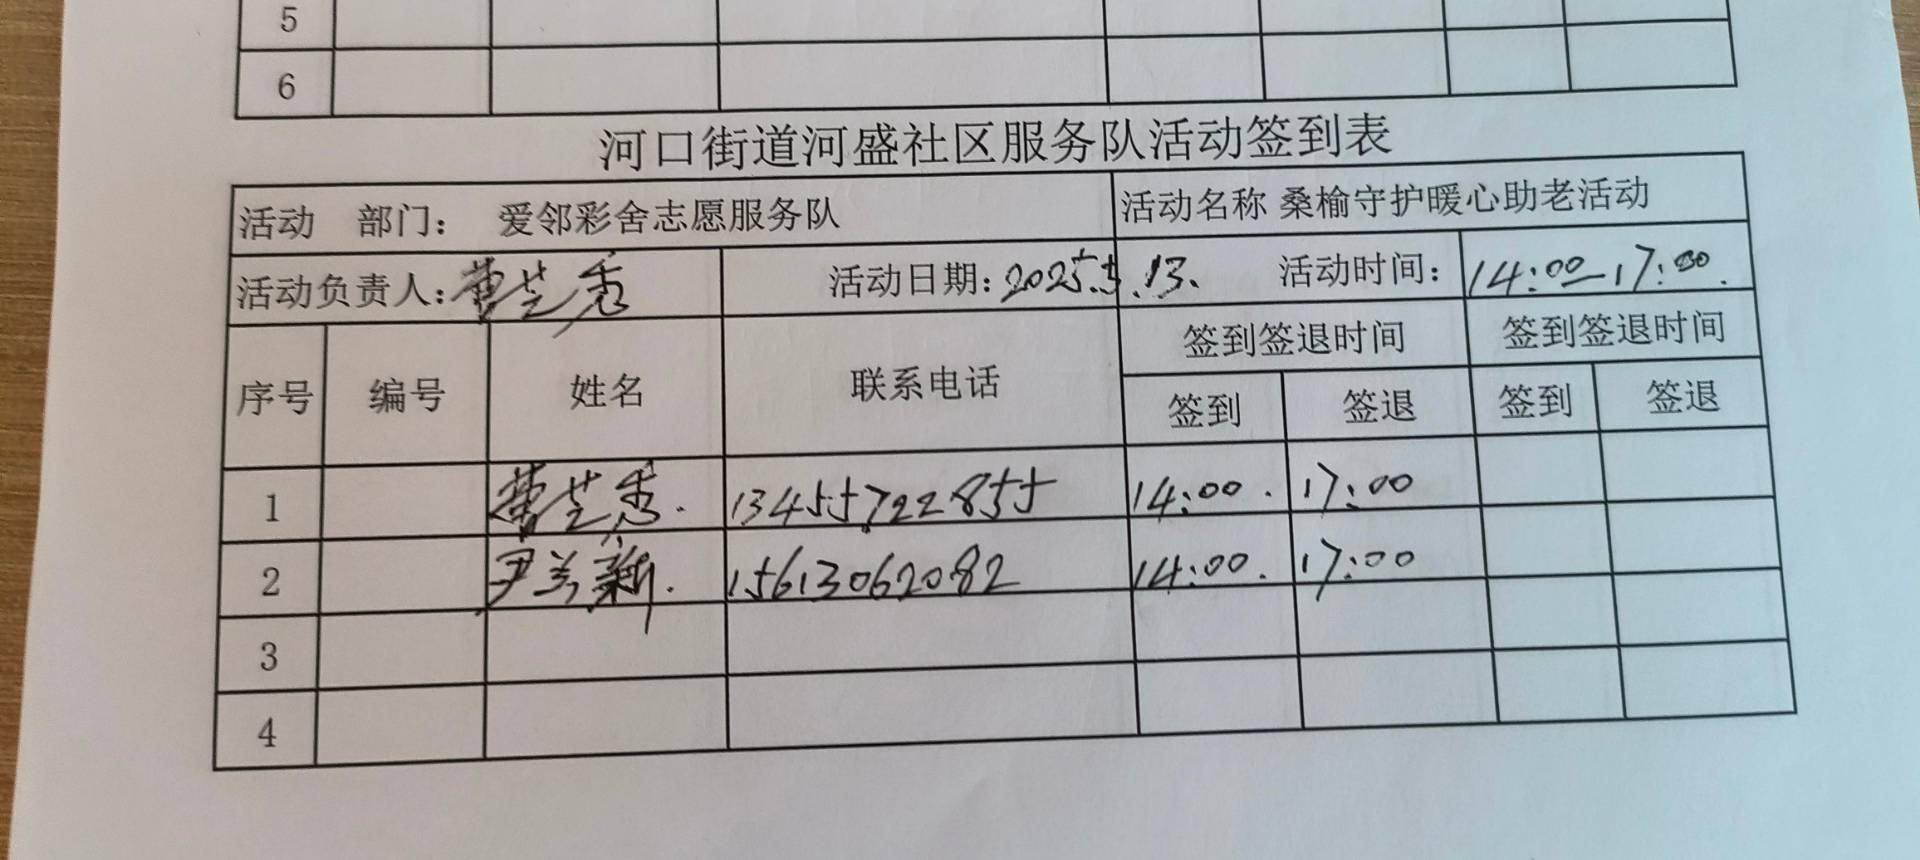 5
6
河口街道河盛社区服务队活动签到表
活动 部门： 爱邻彩舍志愿服务队 活动名称 桑榆守护暖心助老活动
活动负责人：曹芝秀 活动日期：2025.5.13. 活动时间：14:00—17:00.
序号 编号 姓名 联系电话 签到签退时间 签到签退时间
签到 签退 签到 签退
1 曹芝秀. 13455722855 14:00. 17:00
2 尹兰新. 15613062082 14:00. 17:00
3
4